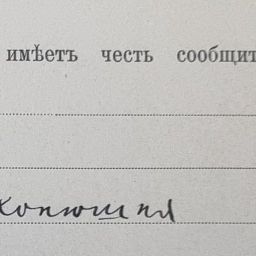 имѣетъ честь сообщит
конюшня